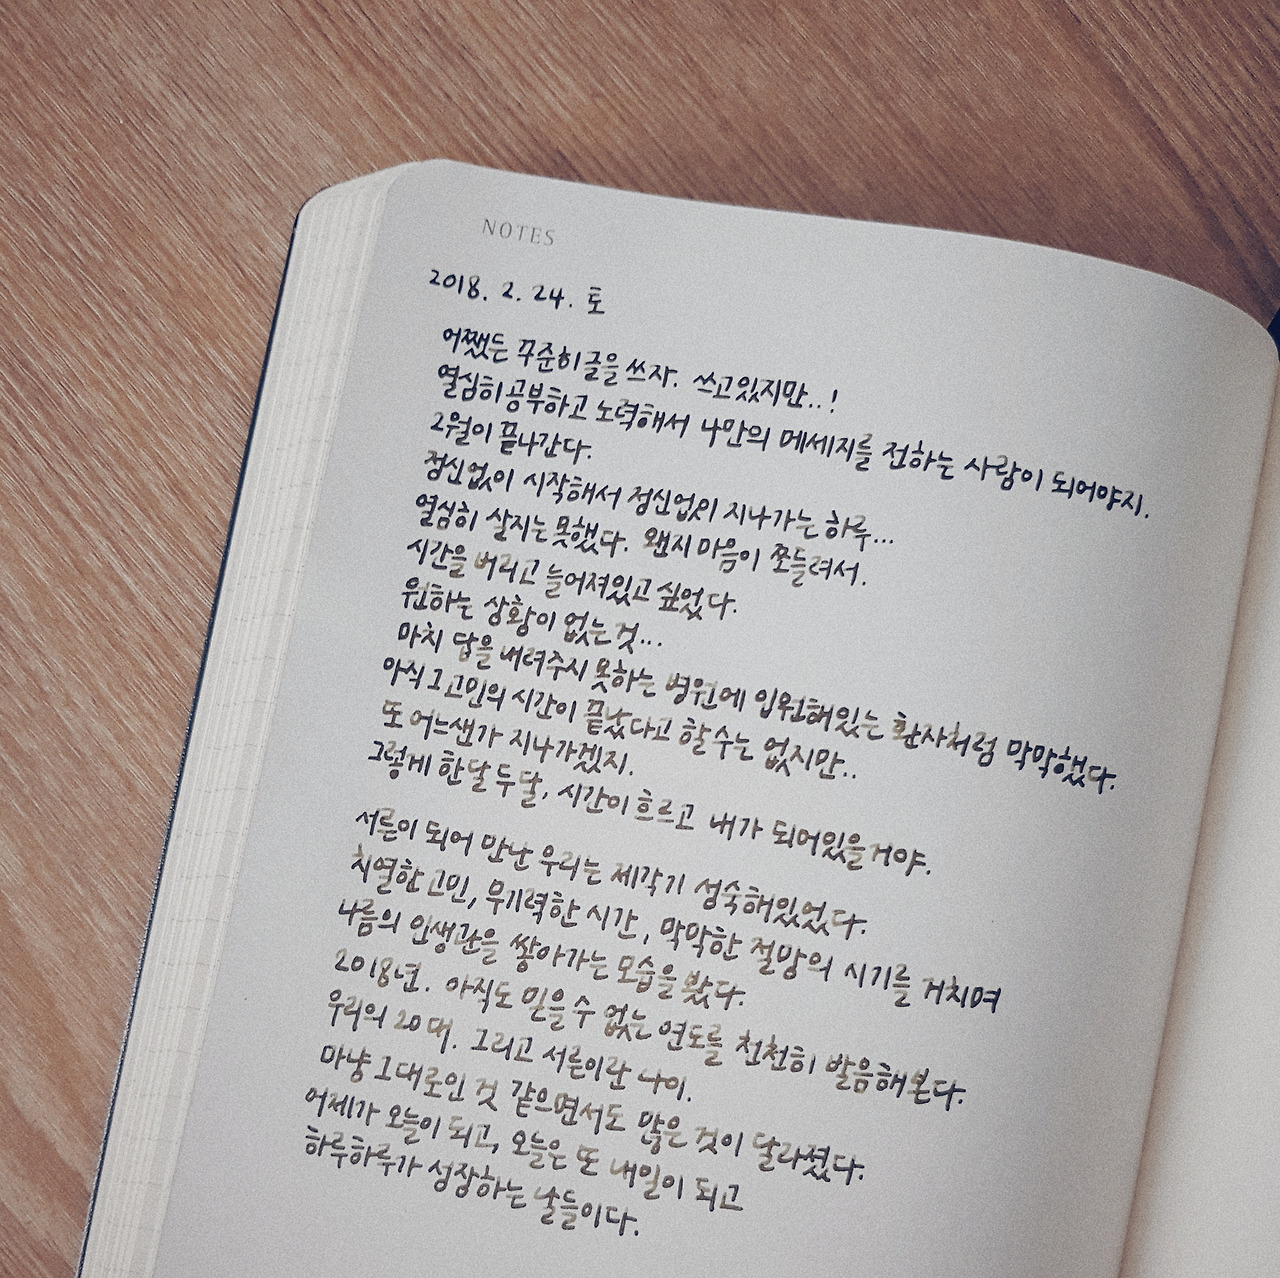 NOTES
2018. 2. 24. 토
어쨌든 꾸준히 글을 쓰자. 쓰고있지만..!
열심히 공부하고 노력해서 나만의 메세지를 전하는 사람이 되어야지.
2월이 끝나간다.
정신없이 시작해서 정신없이 지나가는 하루...
열심히 살지는 못했다. 왠지 마음이 쪼들려서.
시간을 버리고 늘어져있고 싶었다.
원하는 상황이 없는 것...
마치 답을 내려주지 못하는 병원에 입원해있는 환자처럼 막막했다.
아직 그 고민의 시간이 끝났다고 할 수는 없지만..
또 어느샌가 지나가겠지.
그렇게 한달 두달, 시간이 흐르고 내가 되어있을거야.
서른이 되어 만난 우리는 제각기 성숙해있었다.
치열한 고민, 무기력한 시간, 막막한 절망의 시기를 거치며
나름의 인생관을 쌓아가는 모습을 봤다.
2018년. 아직도 믿을 수 없는 연도를 천천히 발음해본다.
우리의 20대. 그리고 서른이란 나이.
마냥 그대로인 것 같으면서도 많은 것이 달라졌다.
어제가 오늘이 되고, 오늘은 또 내일이 되고
하루하루가 성장하는 날들이다.